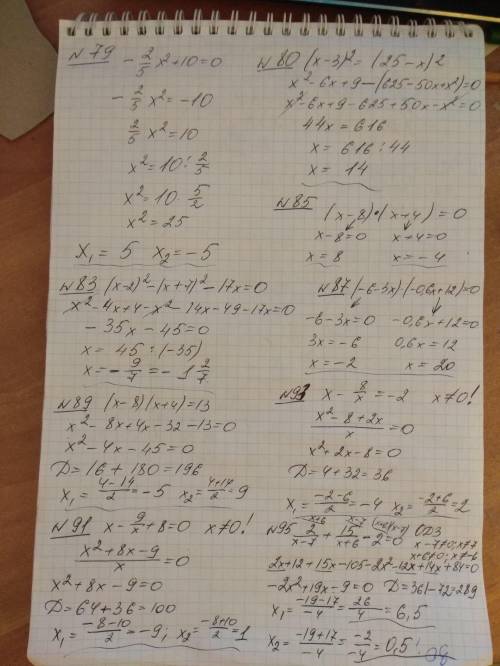 №79 - 2/5 x² + 10 = 0
- 2/5 x² = -10
2/5 x² = 10
x² = 10 : 2/5
x² = 10 · 5/2
x² = 25
x₁ = 5 x₂ = -5
№80 (x-3)² = (25-x)²
x²-6x+9-(625-50x+x²)=0
x²-6x+9-625+50x-x²=0
44x = 616
x = 616 : 44
x = 14
№85
(x-8)·(x+4) = 0
x-8=0 x+4=0
x = 8 x = -4
№83 (x-2)²-(x+7)²-17x=0
x²-4x+4-x²-14x-49-17x=0
-35x-45=0
x = 45 : (-35)
x = -9/7 = -1 2/7
№87 (-6-3x)(-0,6x+12)=0
-6-3x=0 -0,6x+12=0
3x=-6 0,6x=12
x=-2 x=20
№89 (x-8)(x+4)=13
x²-8x+4x-32-13=0
x²-4x-45=0
D=16+180=196
x₁=(4-14)/2=-5 x₂=(4+14)/2=9
№93 x - 8/x = -2 x≠0!
(x²-8+2x)/x = 0
x²+2x-8=0
D=4+32=36
x₁=(-2-6)/2=-4 x₂=(-2+6)/2=2
№91 x - 9/x + 8 = 0 x≠0!
(x²+8x-9)/x = 0
x²+8x-9=0
D=64+36=100
x₁=(-8-10)/2=-9; x₂=(-8+10)/2=1
№95 2/(x-7) + 15/(x+6) - 2=0 ОДЗ
x-7≠0; x≠7
x+6≠0; x≠-6
2x+12+15x-105-2x²-12x+14x+84=0
-2x²+19x-9=0 D=361-72=289
x₁=(-19-17)/-4=26/4=6,5
x₂=(-19+17)/-4=-2/-4=0,5